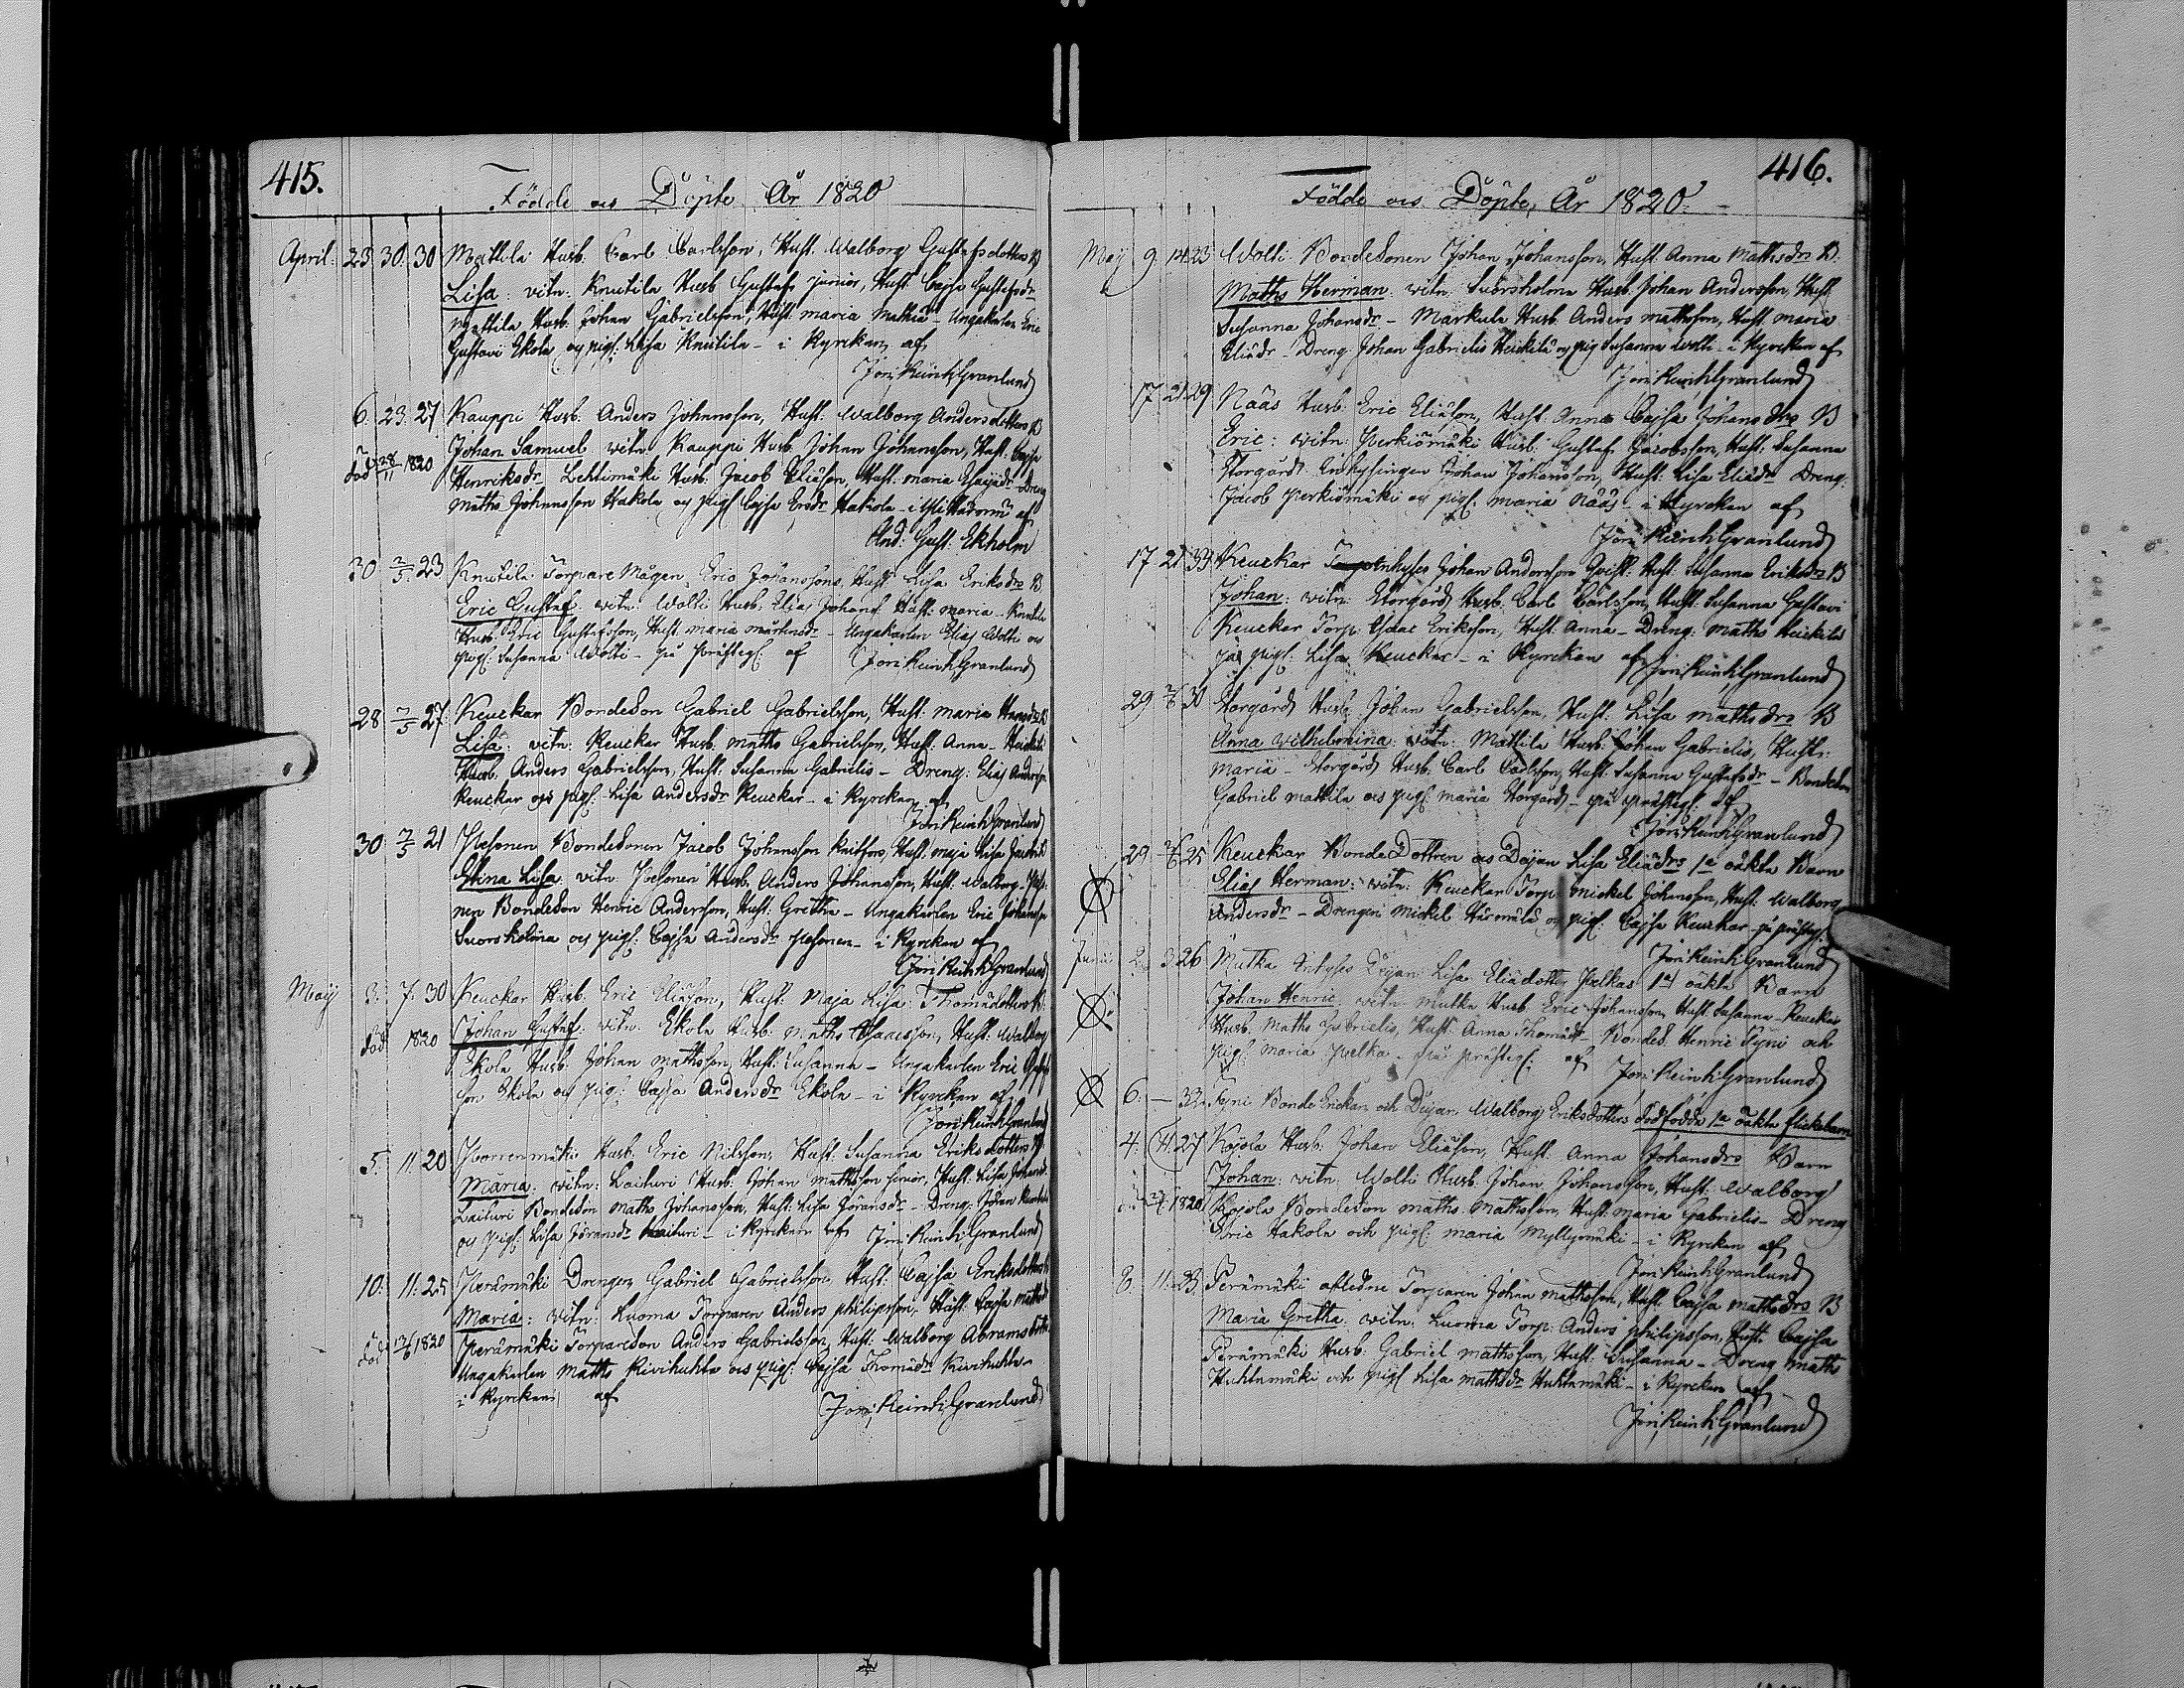 415.
Födde och Döpte År 1820
April: 23 30. 30 Mattila Husb. Carl Carlsson, Hust. Walborg Gustafsdotters B
Lisa: vitn: Knutila Husb Gustaf junior, Hust. Cajsa Gustafsdr
Mattila Husb. Johan Gabrielsson, Hust: maria Mathiæ - Ungakarlen Eric
Gustavi Ekola och pig: Lisa Knutila - i Kyrckan af
Jöri: Reinh: Granlund
6. 23. 27. Kauppi Husb. Anders Johansson, Hust. Walborg Anders dotters B
Johan Samuel vitn Kauppi Husb. Johan Johansson, Hust. Cajsa
död 28/11 1820 Henriksdr Lehtimäki Husb. Jacob Eliæson, Hust. maria - Dreng
Maths Johansson Hakola och pig Cajsa Ersdr Hakola - i af
And: Gust: Ekholm
30 2/5 23 Knutila Torpare Mågen, Eric Johanssons, Hust. Lisa Eriksdrs B
Eric Gustaf. vitn: Wolti Husb. Elias Johans. Hust. maria - Knutila
Husb. Eric Gustafsson, Hust. maria mårtensdr - Ungakarlen Elias Wolti och
pig: Susanna Wolti - på Prästeg: af Jöri: Reinh: Granlund
28 7/5 27. Keuckar Bondeson Gabriel Gabrielsson, Hust. maria
Lisa: vitn: Keuckar Husb. maths Gabrielsson, Hust. Anna - Heickilä
Husb. Anders Gabrielsson, Hust: Susanna Gabrielis - Dreng: Elias Andersson
Keuckar och pig: Lisa Andersdr Keuckar - i Kyrckan af
Jöri: Reinh: Granlund
30 7/5 21 Pesonen Bondesonen Jacob Johansson, Hust. maja Lisa
Stina Lisa. vitn: Pesonen Husb. Anders Johansson, Hust. Walborg - Peso-
nen Bondeson Henric Andersson, Hust. Gretha - Ungakarlen Eric Johansson
Suorsholma och pig: Cajsa Andersdr Pesonen - i Kyrckan af
Jöri: Reinh: Granlund
Maij 3. 7. 30 Keuckar Husb. Eric Eliæson, Hust. Maja Lisa Thomædotters B.
död 1820 Johan Gustaf: vitn: Ekola Husb. maths Isacsson, Hust. Walborg
Ekola Husb. Johan mathsson, Hust. Susanna - Ungakarlen Eric
son Ekola och pig: Cajsa Andersdr Ekola - i Kyrckan af
Jöri: Reinh: Granlund
5. 11. 20 Husb. Eric Nilsson, Hust. Susanna Eriksdotters B
Maria: vitn: Laituri Husb: Johan mathsson senior, Hust. Lisa Johansdr
Laituri Bondeson maths Johansson, Hust. Lisa Jöransdr - Dreng: Johan
och pig: Lisa Jöransdr Laituri - i Kyrckan af Jöri: Reinh: Granlund
10. 11. 25 Perämäki Drengen Gabriel Gabrielsson, Hust. Cajsa Eriksdotters
Maria: vitn: Luoma Torparen Anders philipsson, Hust. Cajsa mathsdr
död 12/6 1820 Perämäki Torpareson Anders Gabrielsson, Hust. Walborg Abrams
Ungakarlen Maths Kivihuhta och pig: Cajsa Thomædr Kivihuhta -
i Kyrckan af Jöri: Reinh: Granlund
416.
Födde och Döpte, År 1820.
Maij 9 14 23 Wolti Bondesonen Johan Johansson, Hust. Anna Mathsdrs B.
Maths Herman: vitn: Suorsholma Husb. Johan Andersson, Hust
Susanna Johansdr - Markula Husb. Anders mathsson, Hust. maria
Eliædr - Dreng: Johan Gabrielis Heickilä och pig Susanna Wolti - i Kyrckan af
Jöri: Reinh: Granlund
17 21 29 Nääs Husb. Eric Eliæson, Hust: Anna Cajsa Johansdrs B
Eric: vitn: Perkiömäki Husb. Gustaf Jacobsson, Hust: Susanna
Storgård Inhysingen Johan Johansson, Hust. Lisa Eliædr Dreng:
Jacob Perkiömäki och pig: maria Nääs - i Kyrckan af
Jöri: Reinh: Granlund
17 21 33 Keuckar Inhyses Johan Andersson Qvist: Hust. Susanna Eriksdrs B
Johan: vitn: Storgård Husb. Carl Carlsson, Hust: Susanna Gustavi
Keuckar Torp. Isaac Eriksson, Hust. Anna - Dreng: maths Heickilä
och pig: Lisa Keuckar - i Kyrckan af Jöri: Reinh: Granlund
29 2/6 30 Storgård Husb. Johan Gabrielsson, Hust: Lisa mathsdrs B
Anna Wilhelmina: vitn: Mattila Husb. Johan Gabrielis, Hustr:
maria - Storgård Husb. Carl Carlsson, Hust. Susanna Gustafsdr - Bondeson
Gabriel mattila och pig: maria Storgård - på prästeg: af
Jöri: Reinh: Granlund
29 2/6 25 Keuckar BondeDottren och Löjan Lisa Eliædrs 1a oäkta Barn
Elias Herman: vitn: Keuckar Torp mickel Johansson, Hust. Walborg
Andersdr - Drengen mickel Härmälä och pig: Cajsa Keuckar - på prästeg:
Jöri: Reinh: Granlund
Junii 2. 3. 26 Mutka Inhyses Löjan Lisa Eliædotter Pelkas 1a oäkta Barn
Johan Henric vitn: mutka Husb: Eric Johansson, Hust. Susanna - Keuckar
Husb. Maths Gabrielis, Hust. Anna Thomædr - Bondes. Henric Fyni och
pig: maria Pelka - på prästeg: af Jöri: Reinh: Granlund
6. - 33. Fyni Bonde Enckan och Löjan Walborg Eriksdotters dödfödde 1a oäkta flickebarn
4: 11. 27 Kojola Husb. Johan Eliæson, Hust. Anna Johansdrs Barn
Johan: vitn: Wolti Husb. Johan Johansson, Hust: Walborg
1820 Kojola Bondeson maths Mathsson, Hust. maria Gabrielis - Dreng
Eric Hakola och pig: maria Myllymäki - i Kyrckan af
Jöri: Reinh: Granlund
8. 11. 23. Perämäki afledne Torparen Johan mathsson, Hust. Cajsa mathsdrs B
Maria Gretha: vitn: Luoma Torp: Anders philipsson, Hust. Cajsa
Perämäki Husb: Gabriel mathsson, Hust. Susanna - Dreng maths
Huhtamäki och pig: Lisa mathsdr Huhtamäki - i Kyrckan af -
Jöri: Reinh: Granlund